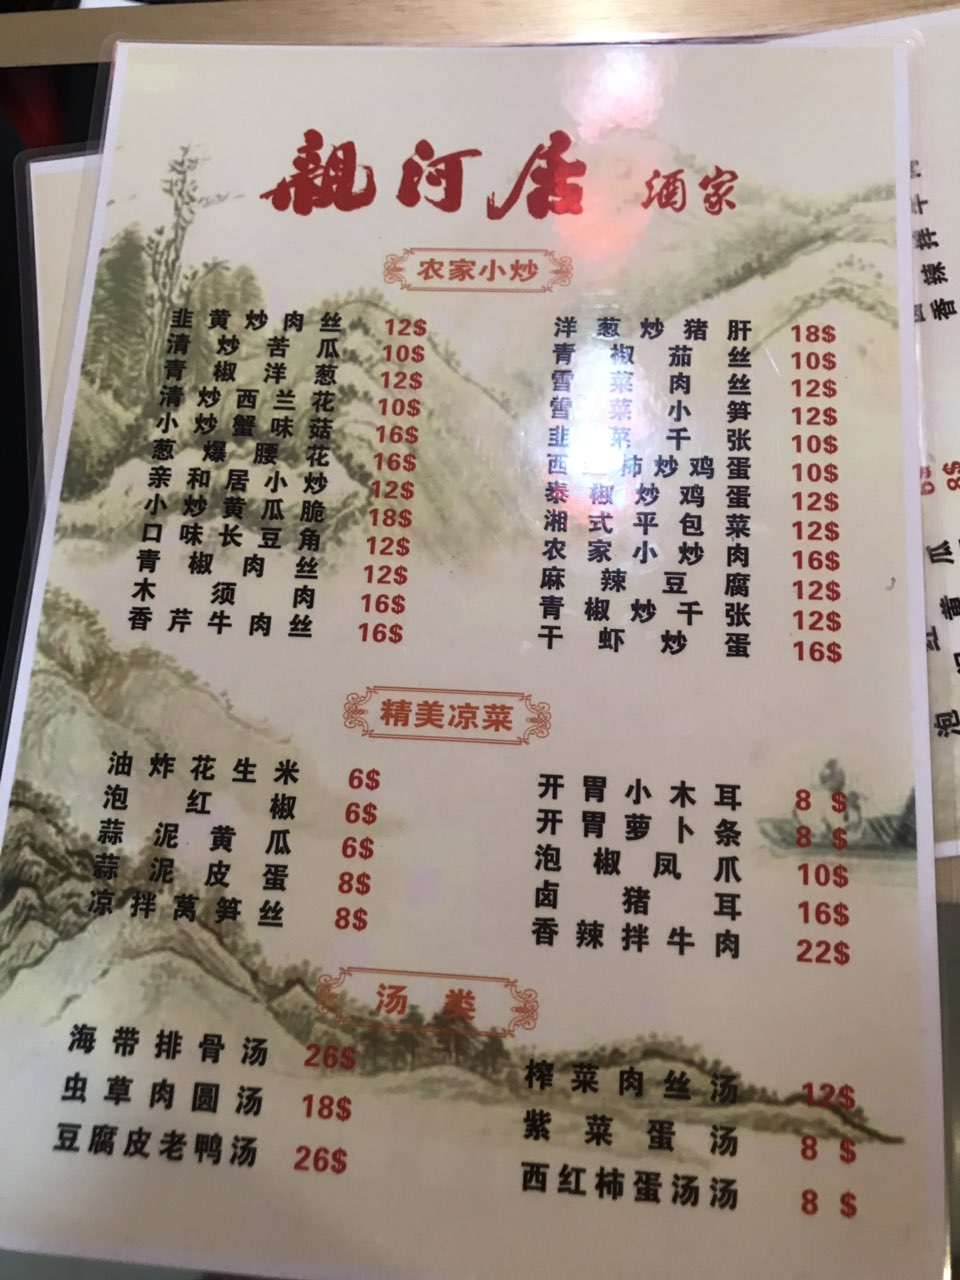 親河居 酒家
农家小炒
韭黄炒肉丝 12$
清炒苦瓜 10$
青椒洋葱 12$
清炒西兰花 10$
小炒蟹味菇 16$
葱爆腰花 16$
亲和居小炒 12$
小炒黄瓜脆 18$
口味长豆角 12$
青椒肉丝 12$
木须肉 16$
香芹牛肉丝 16$
洋葱炒猪肝 18$
青椒茄丝 10$
雪菜肉丝 12$
雪菜小笋 12$
韭菜千张 10$
西红柿炒鸡蛋 10$
泰椒炒鸡蛋 12$
湘式平包菜 12$
农家小炒肉 16$
麻辣豆腐 12$
青椒炒千张 12$
干虾炒蛋 16$
精美凉菜
油炸花生米 6$
泡红椒 6$
蒜泥黄瓜 6$
蒜泥皮蛋 8$
凉拌莴笋丝 8$
开胃小木耳 8 $
开胃萝卜条 8 $
泡椒凤爪 10$
卤猪耳 16$
香辣拌牛肉 22$
汤 类
海带排骨汤 26$
虫草肉圆汤 18$
豆腐皮老鸭汤 26$
榨菜肉丝汤 12$
紫菜蛋汤 8 $
西红柿蛋汤汤 8 $
香辣拌牛
8$